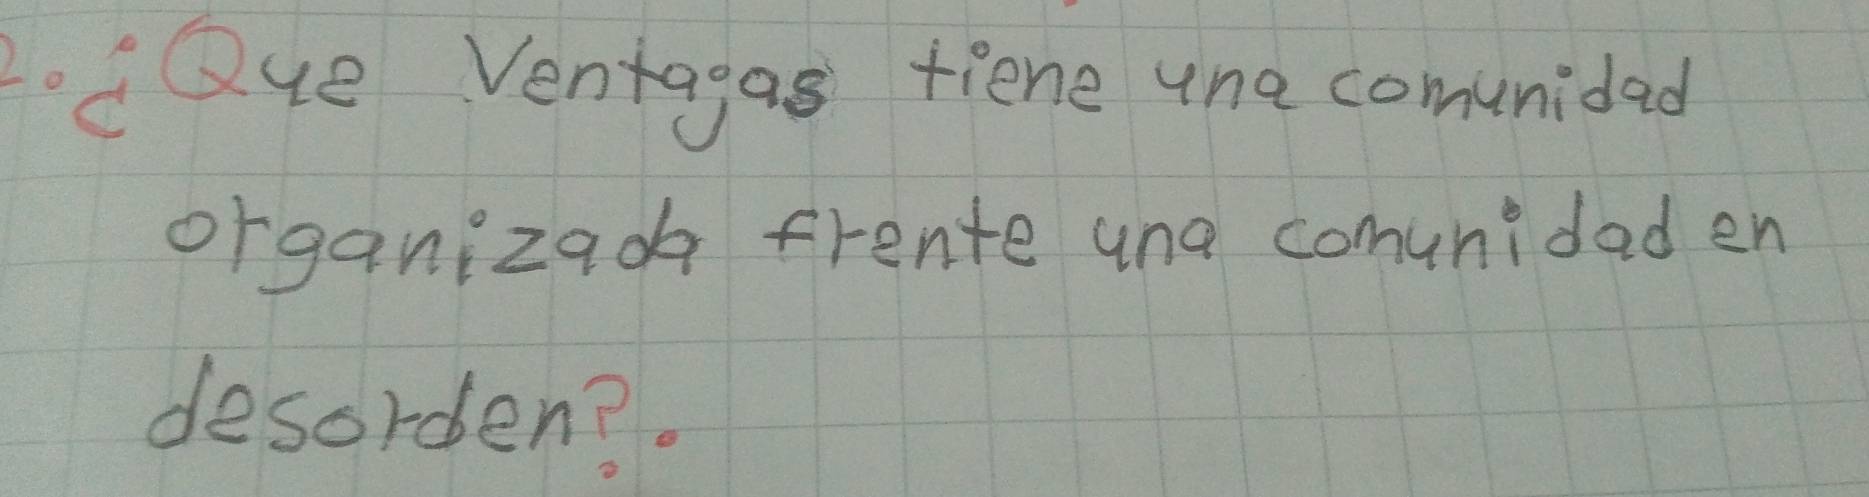 2. ¿Que Ventajas tiene una comunidad
organizada frente una comunidad en
desorden?.